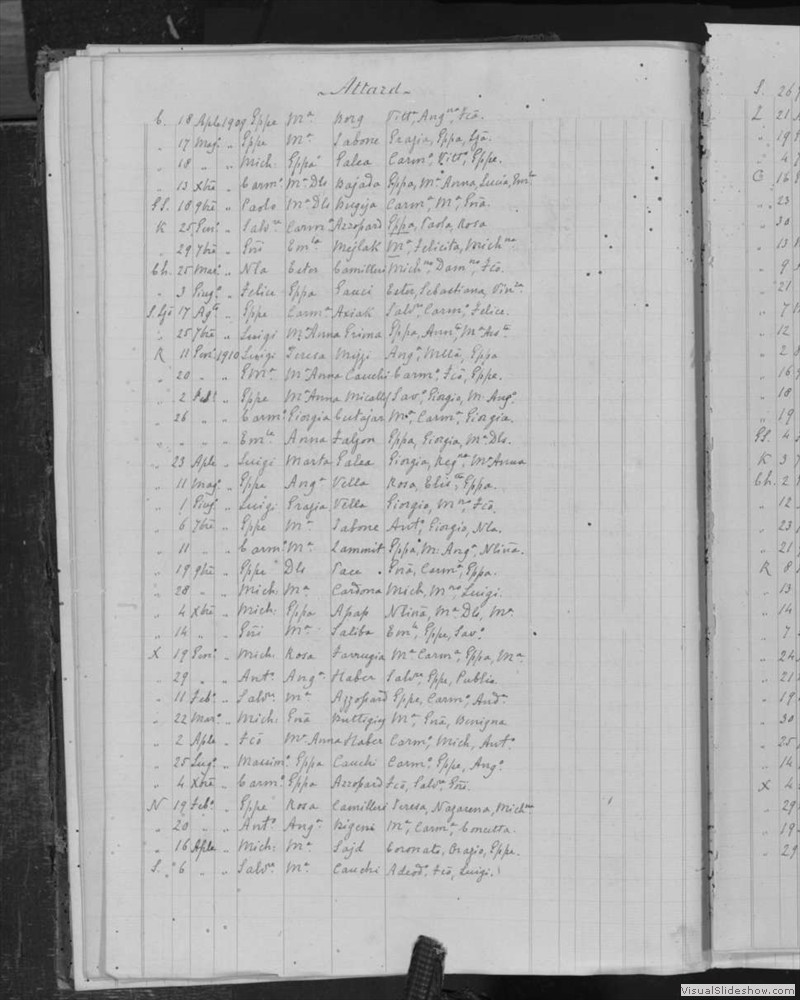 Attard
C. 18 Aple 1909 Gppe Mª Borg Vittª Angna, Fcō.
„ 17 Magº „ Gppe Mª Sabone Grazia, Gppa,
„ 18 „ „ Mich: Gppa Galea Carmª, Vittª, Gppe.
„ 13 Xbre „ Carmº Mª Dls Bajada Gppa, Mª Anna, Lucia, Emla
GS. 18 9bre „ Paolo Mª Dls Bugeja Carmª, Mª, Gnā.
K 25 Genº „ Salvre Carmª Azzopard Gppa, Paola, Rosa
„ 29 7bre „ Gnī Emla Mejlak Mª, Felicita, Michna
Ch. 25 Marº „ Nla Ester Camilleri Michna, Damna, Fcō.
„ 3 Giugº „ Felice Gppa Gauci Ester, Sebastiana, Vinza
S Ljs 17 Agto „ Gppe Carmª Axiak Salvre, Carmª, Felice.
„ 25 7bre „ Luigi Mª Anna Grima Gppa, Annta, Mª Assta
R 11 Genº 1910 Luigi Teresa Mizzi Angª, Gppa
„ 20 „ „ Mª Anna Cauchi Carmª, Fcō, Gppe.
„ 2 Febº „ Gppe Mª Anna Micallef Savª, Giorgio, Mª Angª
„ 26 „ „ Carmº Giorgia Cutajar Mª, Carmª, Giorgia.
„ „ „ „ Emle Anna Falzon Gppa, Giorgia, Mª Dls.
„ 23 Aple „ Luigi Marta Galea Giorgia, Regna, Mª Anna
„ 11 Magº „ Gppe Angª Vella Rosa, Elista, Gppa.
„ 1 Giugº „ Luigi Grazia Vella Giorgio, Mna, Fcō.
„ 6 7bre „ Gppe Mª Sabone Antº, Giorgio, Nla.
„ 11 „ „ Carmº Mª Zammit Gppa, Mª Angª, Nlina.
„ 19 9bre „ Gppe Dls Pace Gnā, Carmª, Gppa.
„ 28 „ „ Mich: Mª Cardona Mich, Mno, Luigi.
„ 4 Xbre „ Mich: Gppa Apap Nlina, Mª Dls, Mª
„ 14 „ „ Gnī Mª Saliba Emla, Gppe, Savª.
X 19 Genº „ Mich: Rosa Farrugia Mª Carmª, Gppa, Mª
„ 29 „ „ Antº Angª Haber Salvre, Gppe, Publia
„ 11 Febº „ Salvre Mª Azzopard Gppe, Carmº, Andª
„ 22 Marº „ Mich: Gnā Buttigieg Mª, Gnā, Benigna
„ 2 Aple „ Fcō Mª Anna Haber Carmº, Mich, Antº
„ 25 Lugº „ Massimº Gppa Cauchi Carmº, Gppe, Angº
„ 4 Xbre „ Carmº Gppa Azzopard Fcō, Salvre, Gnī.
N 19 Febº „ Gppe Rosa Camilleri Teresa, Nazarena, Michna
„ 20 „ „ Antº Angª Bigeni Mª, Carmª, Concetta.
„ 16 Aple „ Mich: Mª Sajd Coronato, Orazio, Gppe.
S. 6 „ „ Salvre Mª Cauchi Adeodº, Fcō, Luigi.
S. 26
Z 21
„ 19
„ 4
C 16
„ 23
„ 30
„ 13
„ 9
„ 21
„ 7
„ 12
„ 2
„ 16
„ 18
„ 19
GS. 4
K 3
Ch. 2
„ 12
„ 23
„ 21
R 8
„ 13
„ 14
„ 7
„ 24
„ 21
„ 19
„ 30
„ 25
„ 14
X 4
„ 29
„ 19
„ 29
VisualSlideshow.com